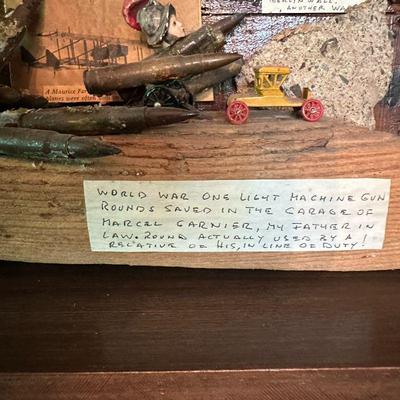 BERLIN WALL,
, ANOTHER WA
A Maurice Far
planes were often
WORLD WAR ONE LIGHT MACHINE GUN
ROUNDS SAVED IN THE GARAGE OF
MARCEL GARNIER, MY FATHER IN
LAW. ROUND ACTUALLY USED BY A
RELATIVE OF HIS, IN LINE OF DUTY!